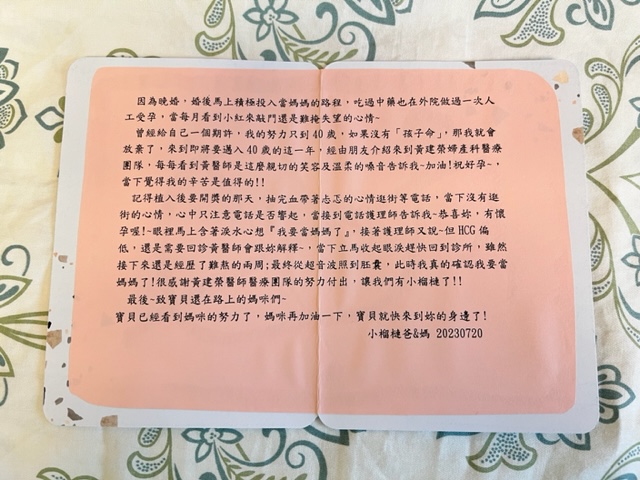 因為晚婚，婚後馬上積極投入當媽媽的路程，吃過中藥也在外院做過一次人
工受孕，當每月看到小紅來敲門還是難掩失望的心情~
曾經給自己一個期許，我的努力只到40歲，如果沒有「孩子命」，那我就會
放棄了，來到即將要邁入40歲的這一年，經由朋友介紹來到黃建榮婦產科醫療
團隊，每每看到黃醫師是這麼親切的笑容及溫柔的嗓音告訴我~加油!祝好孕~，
當下覺得我的辛苦是值得的!!
記得植入後要開獎的那天，抽完血帶著忐忑的心情逛街等電話，當下沒有逛
街的心情，心中只注意電話是否響起，當接到電話護理師告訴我~恭喜妳，有懷
孕喔!~眼裡馬上含著淚水心想『我要當媽媽了』，接著護理師又說~但HCG偏
低，還是需要回診黃醫師會跟妳解釋~，當下立馬收起眼淚趕快回到診所，雖然
接下來還是經歷了難熬的兩周;最終從超音波照到胚囊，此時我真的確認我要當
媽媽了!很感謝黃建榮醫師醫療團隊的努力付出，讓我們有小榴槤了!!
最後~致寶貝還在路上的媽咪們~
寶貝已經看到媽咪的努力了，媽咪再加油一下，寶貝就快來到妳的身邊了!
小榴槤爸&媽 20230720